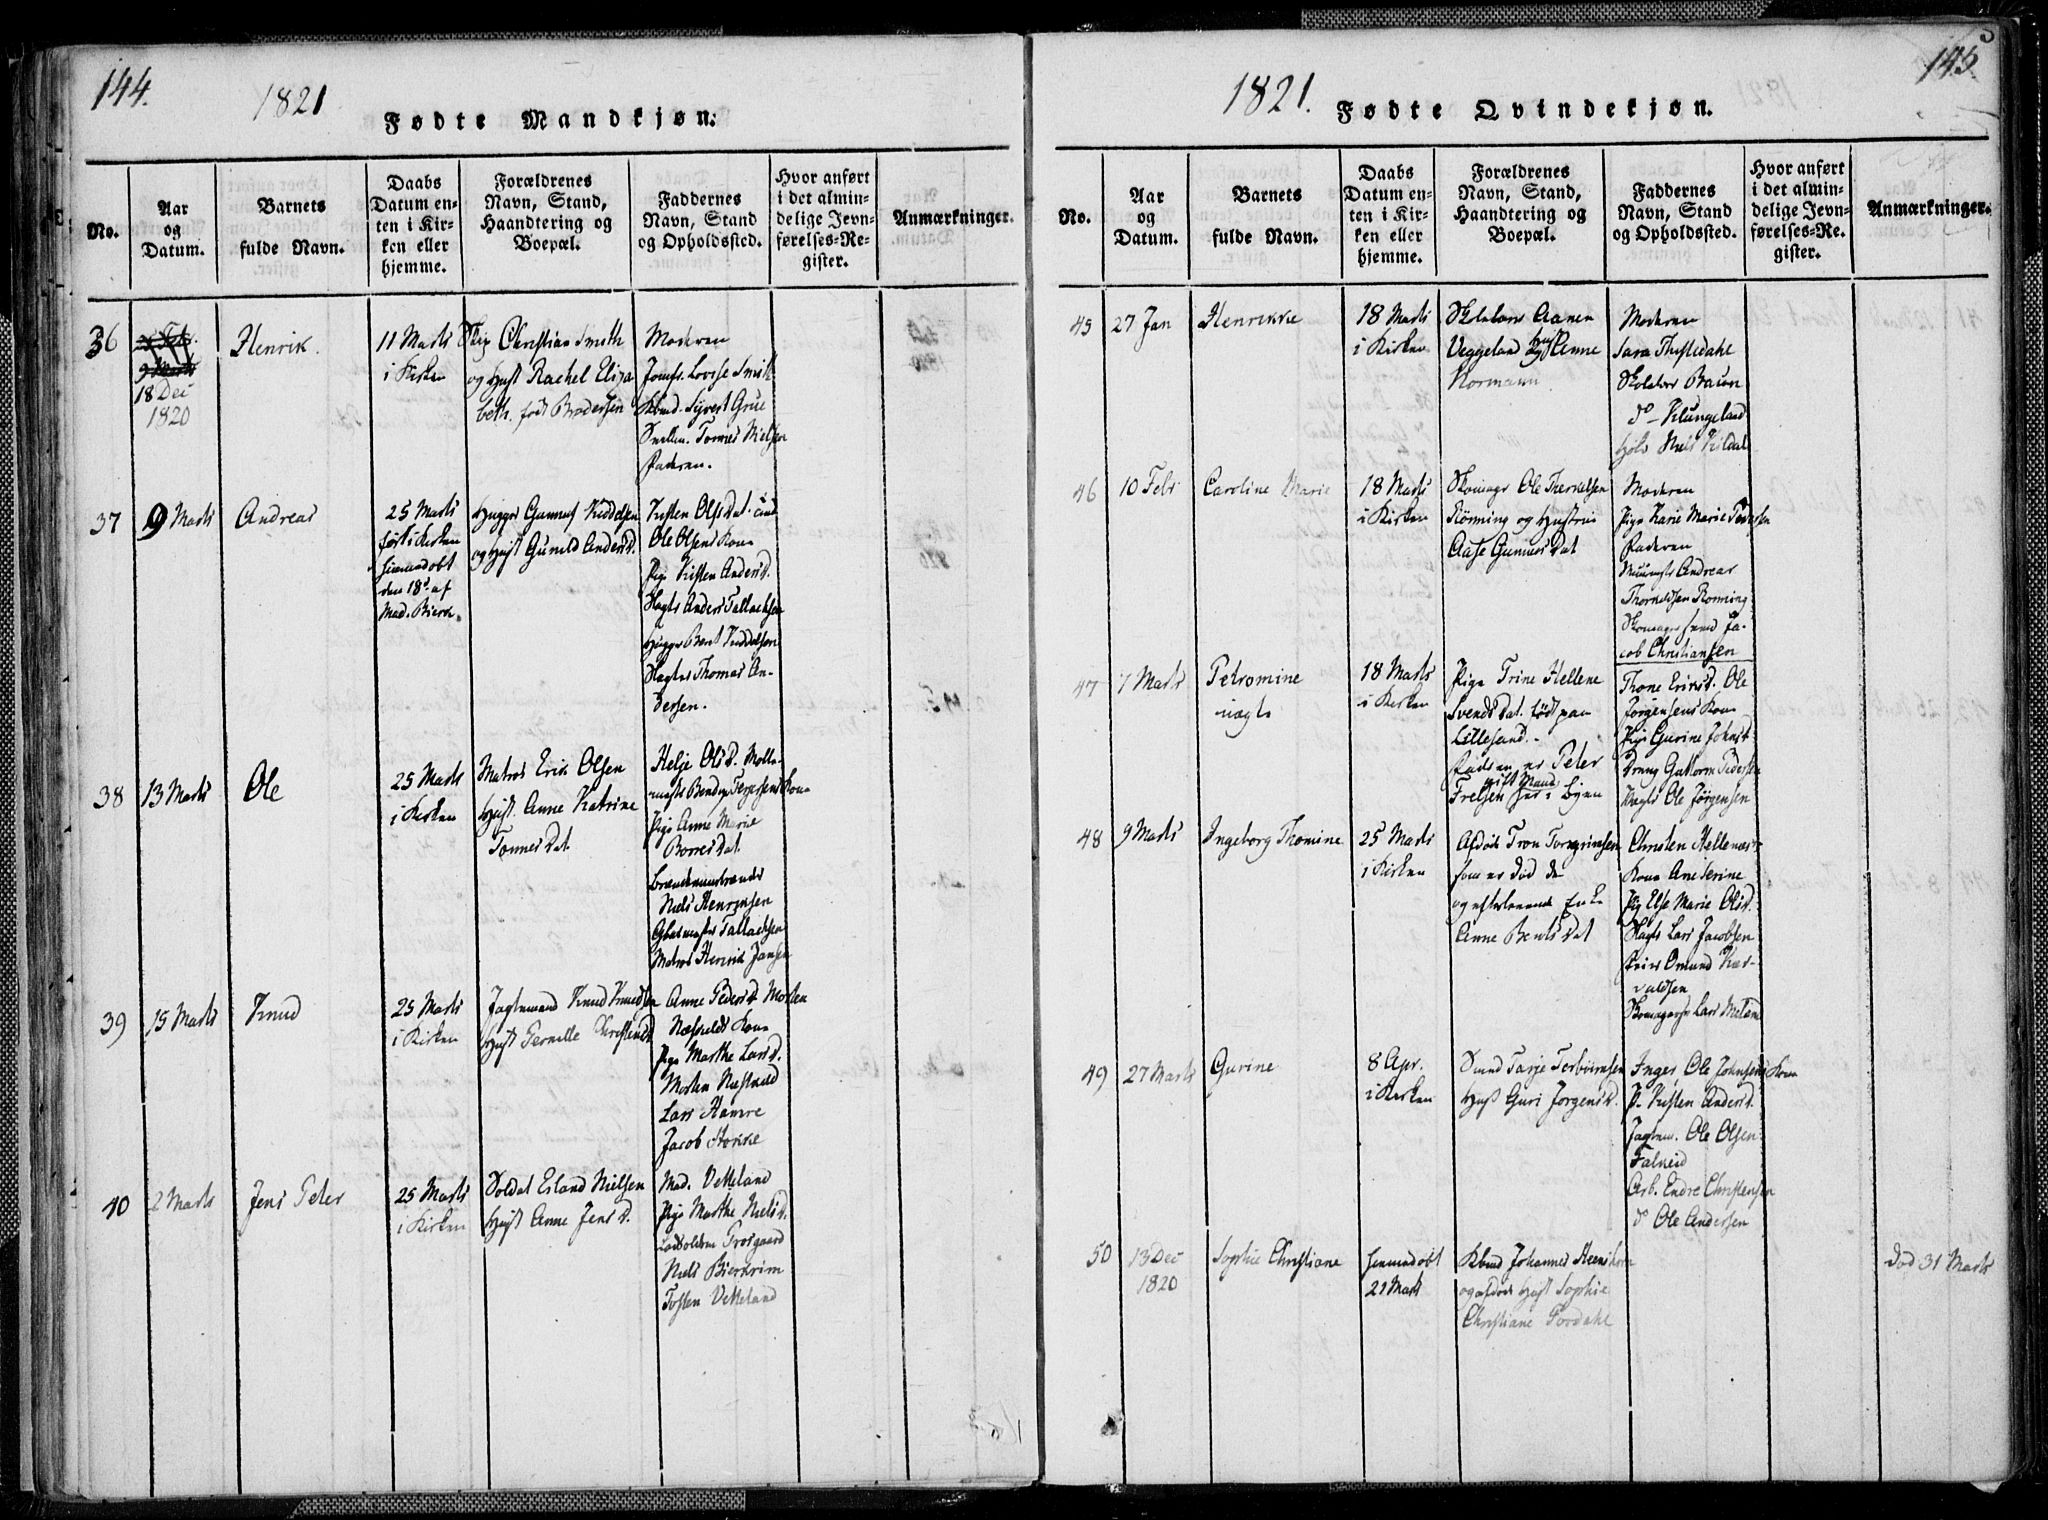 144.
1821
Fødte Mandkjøn.
No.
Aar og Datum.
Barnets fulde Navn.
Daabs Datum enten i Kirken eller hjemme.
Forældrenes Navn, Stand, Haandtering og Boepæl.
Faddernes Navn, Stand og Opholdssted.
Hvor anført i det almindelige Jevnførelses-Register.
Anmærkninger.
36
18 Dec
1820
Henrik.
11 Marts
i Kirken
Skip Christian Smith
og Hust Rachel Eliza
beth. født Brodersen
Moderen
Jomfr. Lovise Smith
Kbmd. Syvert Grue
Snedker. Tønnes Nielsen
Faderen.
37
9 Marts
Andreas
25 Marts
først i Kirken
hiemmedøbt
den 18d af
Mad. Bierk.
Hugger Gunnuf Kiddelsen
og Hust Gunild Andersd.
Kisten Olsdat.
Ole Olsens Kone
Pige Kisten Andersd.
Anders Tallachsen
Hugger Bent Kiddelsen
Thomas An-
dersen.
38
13 Marts
Ole
25 Marts
i Kirken
Matros Erik Olsen
Hust. Anne Katrine
Tønnesdat
Helje Olsd.
Kone
Pige Anne Marie
Borresdat
Niels Henrysen
Tallachsen
Matros Henrik Jansen
39
15 Marts
Knud
25 Marts
i Kirken
Jagtemand Knud Knudsen
Hust Pernille Christensd
Anne Pedersd. Morten
Kone
Pige Marthe Larsd.
Morten
Lars Hamre
Jacob Stokke
40
2 Marts
Jens Peter
25 Marts
i Kirken
Soldat Erland Nielsen
Hust Anne Jensd.
Mad. Vetteland
Pige Marthe Nielsd.
Grosgaard
Niels Bierkrim
Tosten Vetteland
145
1821.
Fødte Qvindekjøn.
No.
Aar og Datum.
Barnets fulde Navn.
Daabs Datum enten i Kirken eller hjemme.
Forældrenes Navn, Stand, Haandtering og Boepæl.
Faddernes Navn, Stand og Opholdssted.
Hvor anført i det almindelige Jevnførelses-Register.
Anmærkninger.
45
27 Jan
Henrikke
18 Marts
i Kirken
Skolelærer Aanen
Veggeland og Hust Anne
Normann
Moderen
Sara Thistedahl
Skolelærer
do Klungeland
Niels Kildal
46
10 Febr
Caroline Marie
18 Marts
i Kirken
Skomager Ole Therkelsen
Rönning og Hustrue
Aase Gunnersdat
Moderen
Pige Karie Marie Pedersen
Faderen
Muurmester Andreas
Thorkelsen Ronning
Skomagersvend Ja-
cob Christiansen
47
7 Marts
Petromine
uægte
18 Marts
i Kirken
Pige Trine Hellene
Svendsdat. født paa
Lillesand. -
Faderen er Peter
Frelsen gift Mand her i Byen
Thone Eriksd. Ole
Jørgensens Kone
Pige Gurine Johnsd.
Dreng Guttorm Pedersen
Ole Jørgensen
48
9 Marts
Ingeborg Thomine
25 Marts
i Kirken
Afdøde Tron Torgrimsen
som er död de
og efterlevende Enke
Anne Bentsdat
Christen Hellenæs
Kone Ane Serine
Pig Else Marie Olsd.
Lars Jacobsen
Omund Har-
valdsen
Lars
49
27 Marts
Gurine
8 Apr.
i Kirken
Smed Tarje Torbiørnsen
Hust Guri Jørgensd.
Inger Ole Johnsens Kone
P. Kisten Andersd.
Jagtem. Ole Olsen
Falkeid
Arb. Endre Christensen
do Ole Andersen
50
13 Dec
1820
Sophie Christiane
hiemmedøbt
21 Marts
Kbmd Johannes Heenskorn
og afdøde Hust Sophie
Christiane Tordahl
død 31 Marts